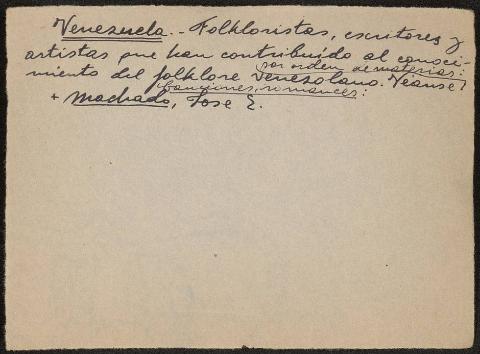 Venezuela.- Folkloristas, escritores y
artistas que han contribuido al conoci-
por orden de materias:
miento del folklore venezolano. Véanse:
Canciones, romances:
+ Machado, Jose E.